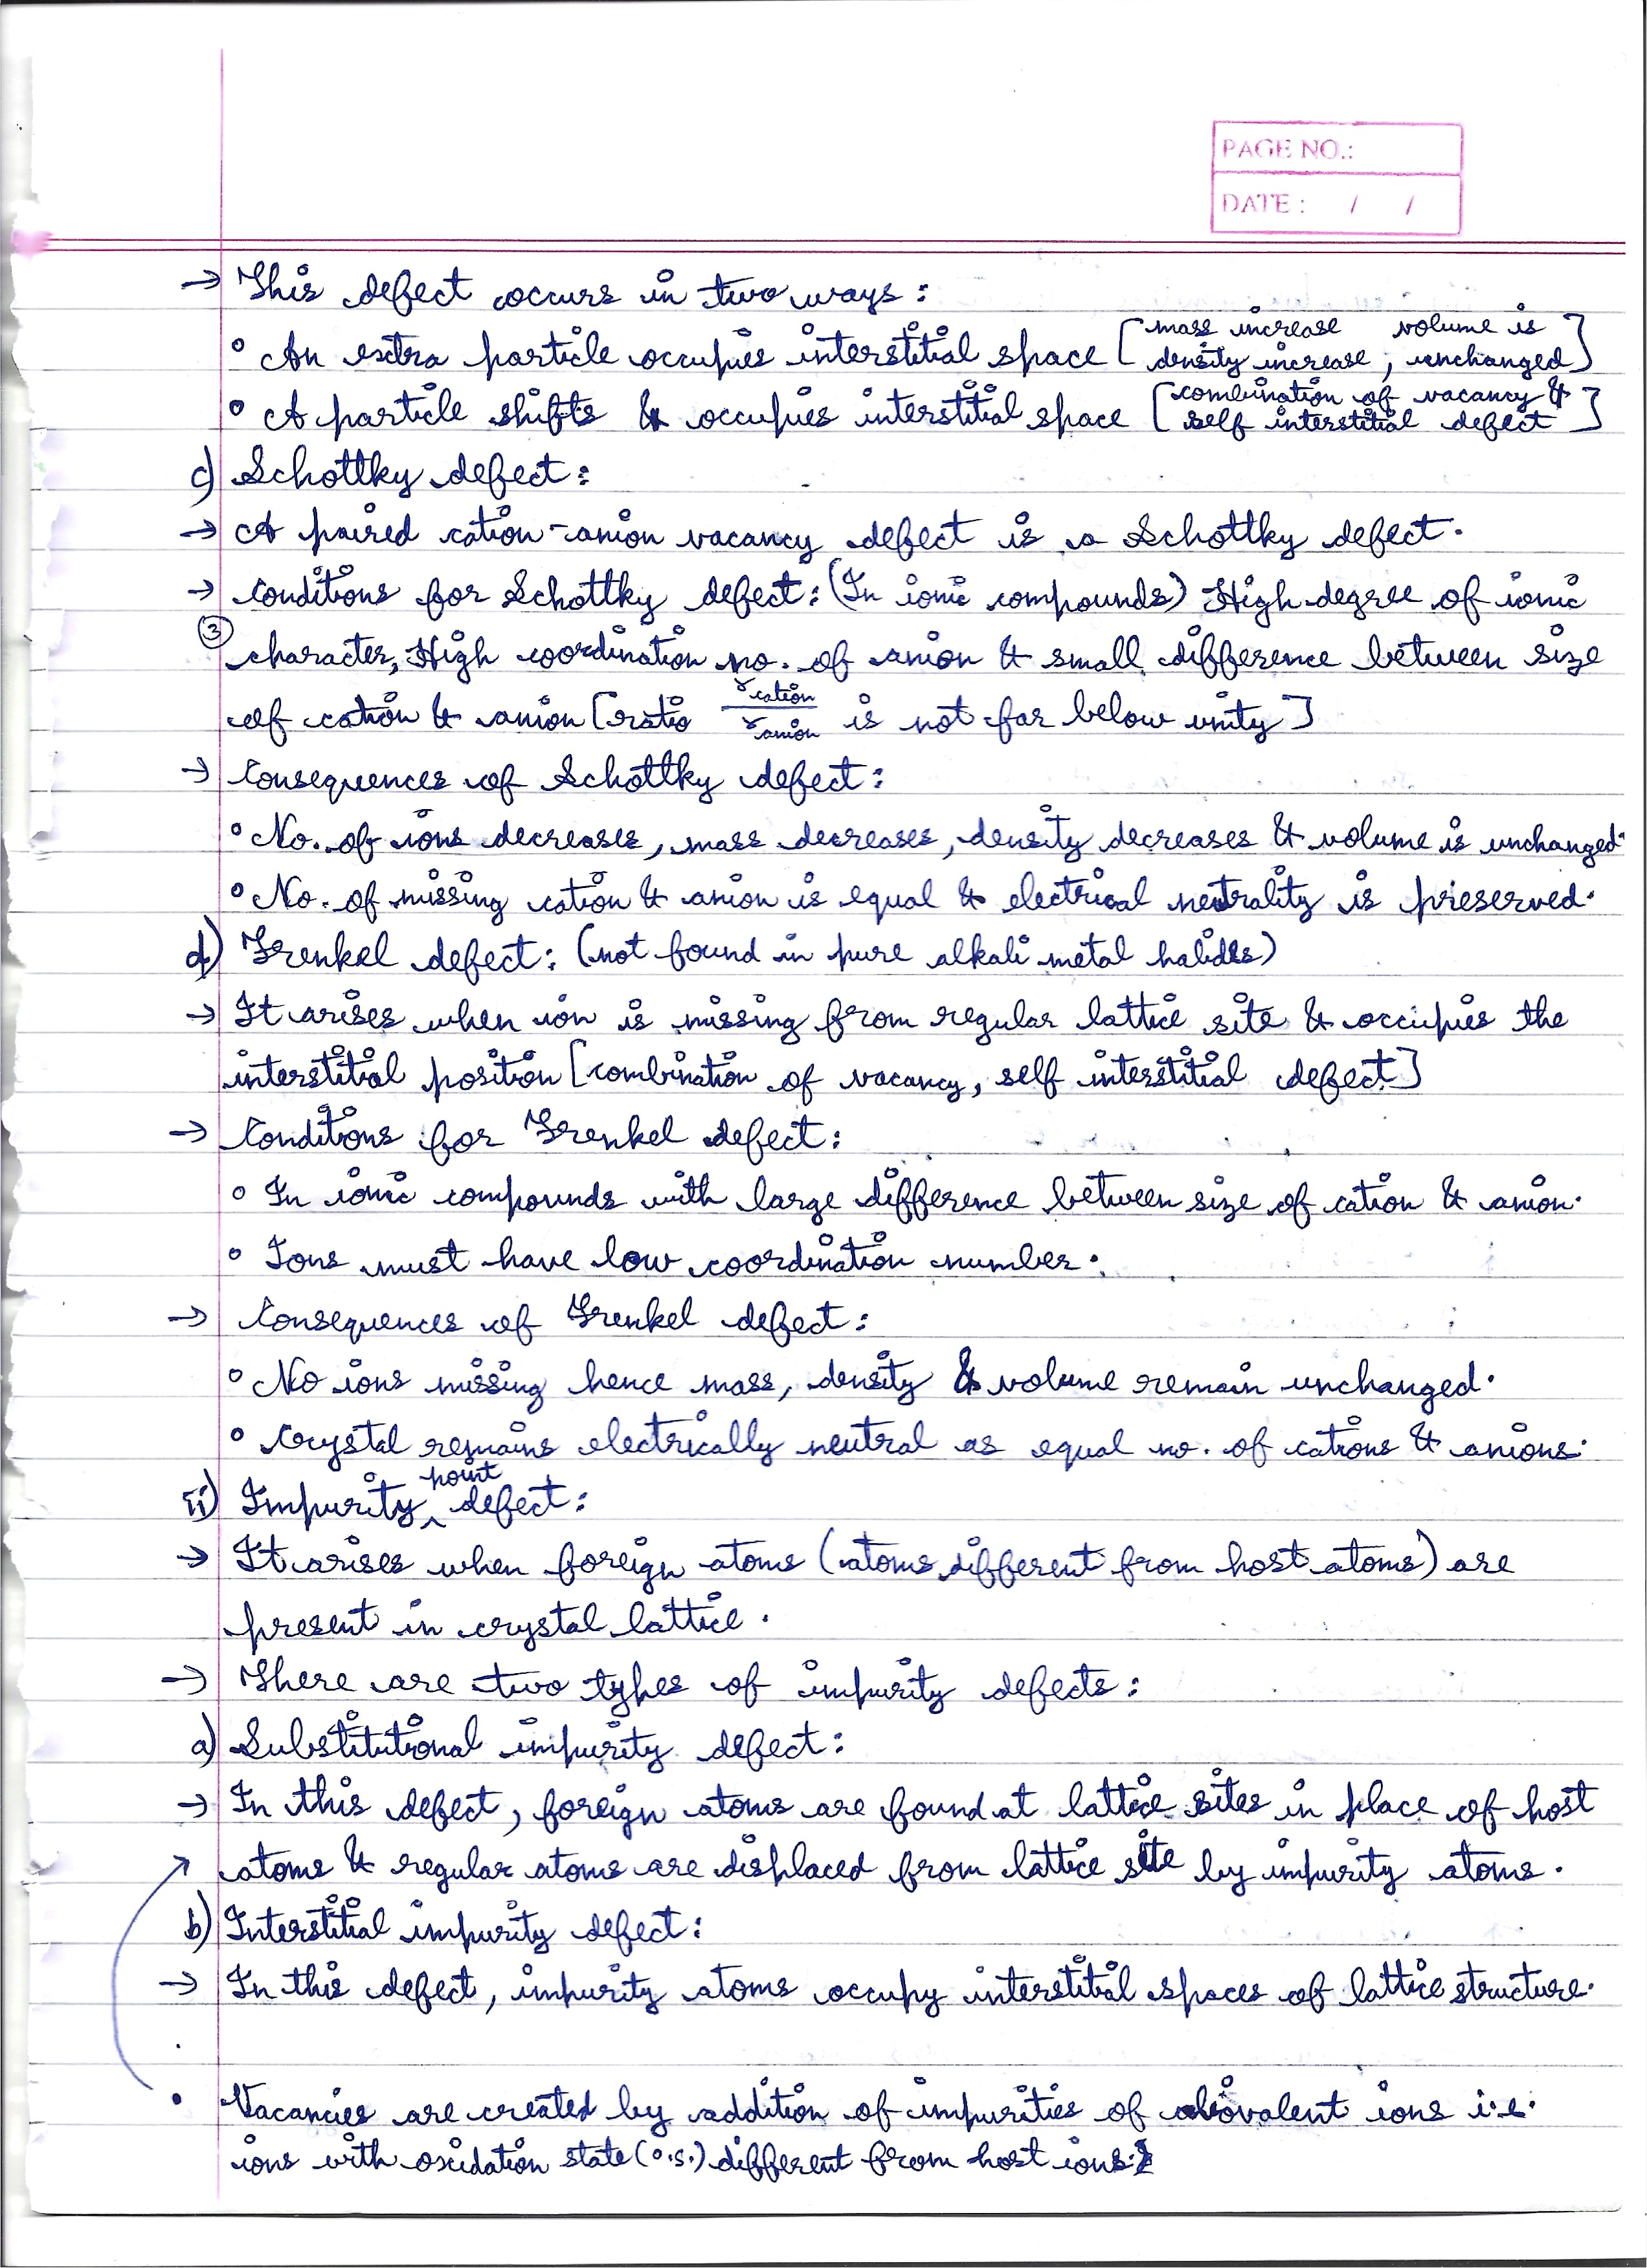 PAGE NO.:
DATE : / /
→ This defect occurs in two ways :
° An extra particle occupies interstitial space [mass increase density increase ; volume is unchanged]
° A particle shifts & occupies interstitial space [combination of vacancy & self interstitial defect]
c) Schottky defect :
→ A paired cation-anion vacancy defect is a Schottky defect.
→ Conditions for Schottky defect : (In ionic compounds) High degree of ionic
③ character, High coordination no. of anion & small difference between size
of cation & anion [ratio r cation / r anion is not far below unity]
→ Consequences of Schottky defect :
° No. of ions decreases, mass decreases, density decreases & volume is unchanged.
° No. of missing cation & anion is equal & electrical neutrality is preserved.
d) Frenkel defect : (not found in pure alkali metal halides)
→ It arises when ion is missing from regular lattice site & occupies the
interstitial position [combination of vacancy, self interstitial defect]
→ Conditions for Frenkel defect :
° In ionic compounds with large difference between size of cation & anion.
° Ions must have low coordination number.
→ Consequences of Frenkel defect :
° No ions missing hence mass, density & volume remain unchanged.
° Crystal remains electrically neutral as equal no. of cations & anions.
ii) Impurity point defect :
→ It arises when foreign atoms (atoms different from host atoms) are
present in crystal lattice.
→ There are two types of impurity defects :
a) Substitutional impurity defect :
→ In this defect, foreign atoms are found at lattice sites in place of host
atoms & regular atoms are displaced from lattice site by impurity atoms.
b) Interstitial impurity defect :
→ In this defect, impurity atoms occupy interstitial spaces of lattice structure.
• Vacancies are created by addition of impurities of aliovalent ions i.e.
ions with oxidation state (o.s.) different from host ions.